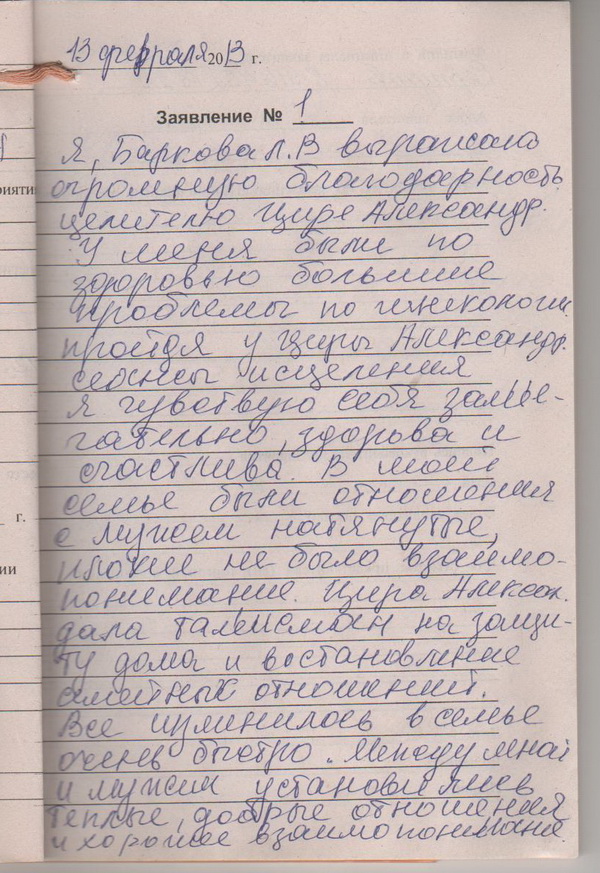 13 февраля 2013 г.
Заявление № 1
Я, Баркова Л.В выражаю
огромную благодарность
целителю Цире Александр.
У меня были по
здоровью большие
проблемы по гинекологии
пройдя у Циры Александр.
сеансы исцеления
я чувствую себя заме-
чательно, здорова и
счастлива. В моей
семье были отношения
с мужем натянутые,
плохие не было взаимо-
понимание. Цира Алексан.
дала талисман на защи-
ту дома и востановление
семейных отношений.
Все изменилось в семье
очень быстро. Между мной
и мужем установились
теплые, добрые отношения
и хорошее взаимопонимание.
г.